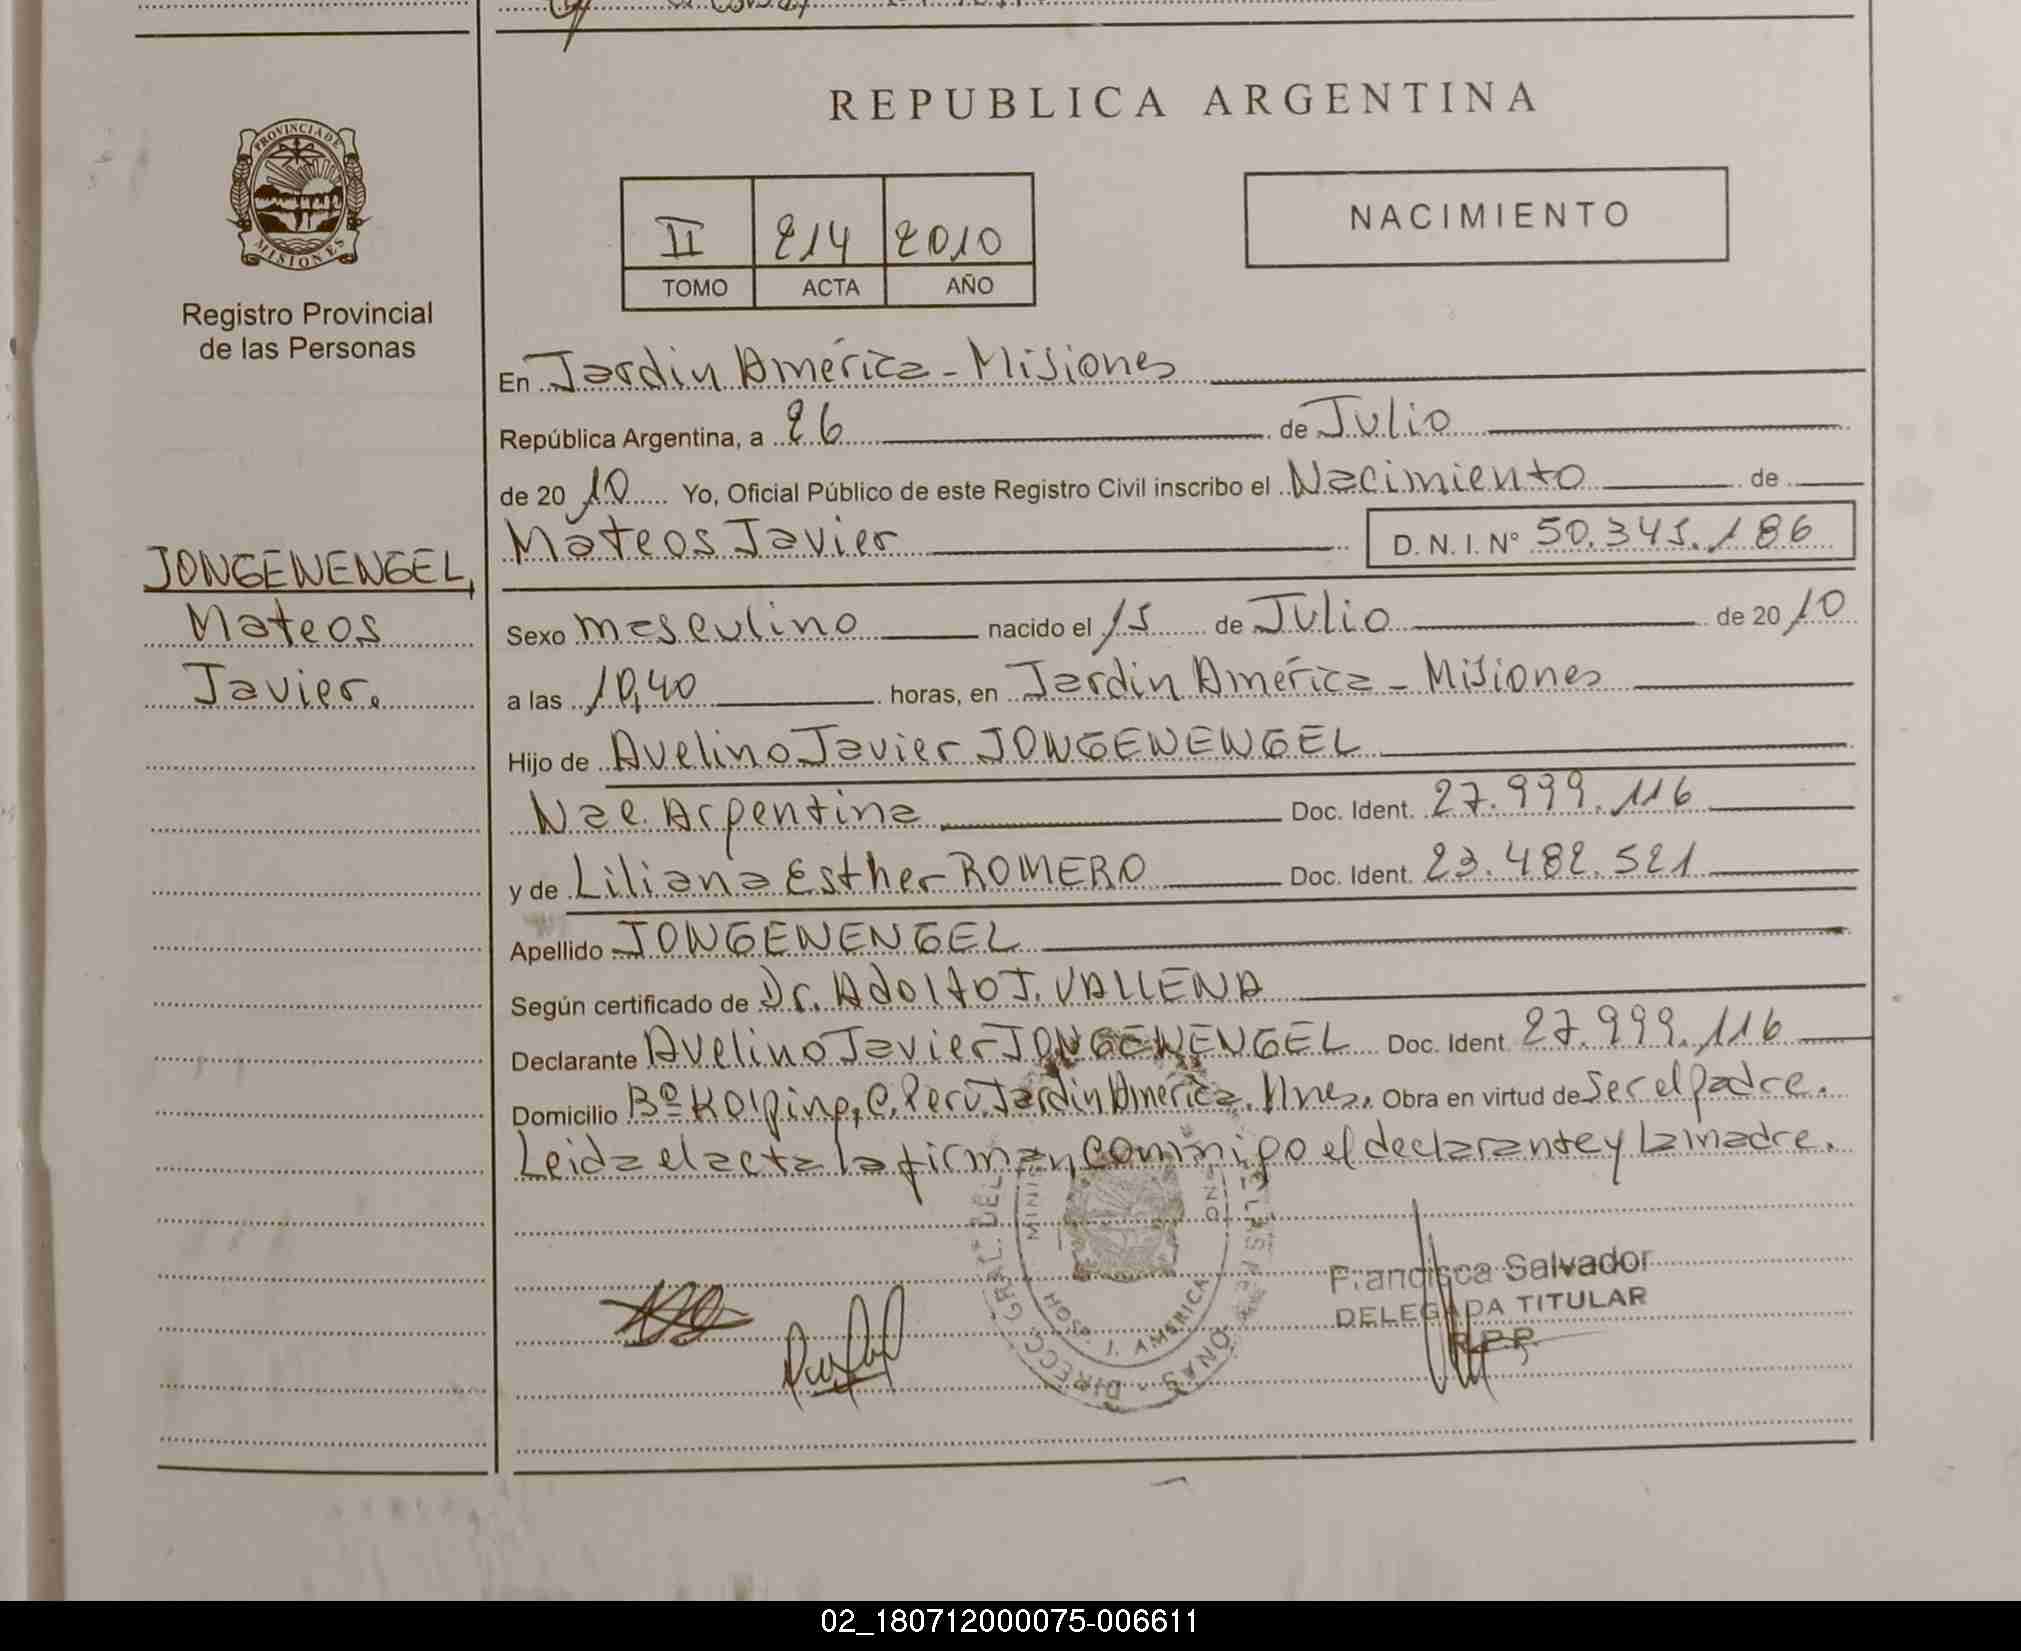 REPUBLICA ARGENTINA
PROVINCIA DE
MISIONES
Registro Provincial
de las Personas
II 214 2010
TOMO ACTA AÑO
NACIMIENTO
JONGENENGEL,
Mateos
Javier.
En Jardin América - Misiones
República Argentina, a 26 de Julio
de 2010 Yo, Oficial Público de este Registro Civil inscribo el Nacimiento de
Mateos Javier D. N. I. Nº 50.345.186
Sexo masculino nacido el 15 de Julio de 2010
a las 10,40 horas, en Jardin América - Misiones
Hijo de Avelino Javier JONGENENGEL
Nac. Argentina Doc. Ident. 27.999.116
y de Liliana Esther ROMERO Doc. Ident. 23.482.521
Apellido JONGENENGEL
Según certificado de Dr. Adolfo J. VALLENA
Declarante Avelino Javier JONGENENGEL Doc. Ident. 27.999.116
Domicilio Bº Kolping, C. Perú. Jardin América. Mnes. Obra en virtud de ser el padre.
Leida el acta la firman conmigo el declarante y la madre.
DIRECC. GRAL. DEL
J. AMERICA
Francisca Salvador
DELEGADA TITULAR
R.P.P.
02_180712000075-006611